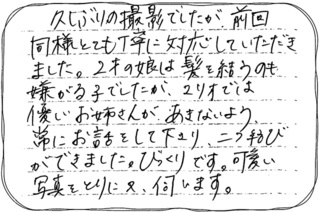 久しぶりの撮影でしたが、前回
同様とても丁寧に対応していただき
ました。2才の娘は髪を結うのも
嫌がる子でしたが、スタジオでは
優しいお姉さんが、あきないよう、
常にお話をして下さり、二つ結び
ができました。びっくりです。可愛い
写真をとりに又、伺います。